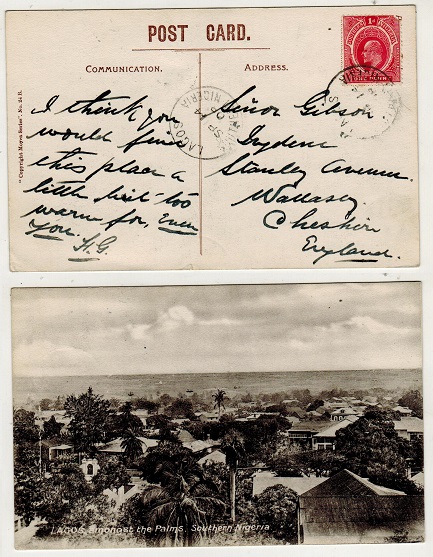 POST CARD.
COMMUNICATION.
ADDRESS.
"Copyright Moyes Series", No. 24 B.
I think you
would find
this place a
little bit too
warm for, even
you. H.G.
Señor Gibson
Stanley Avenue.
Wallasey
Cheshire
England.
LAGOS
NIGERIA
LAGOS, amongst the Palms, Southern Nigeria.